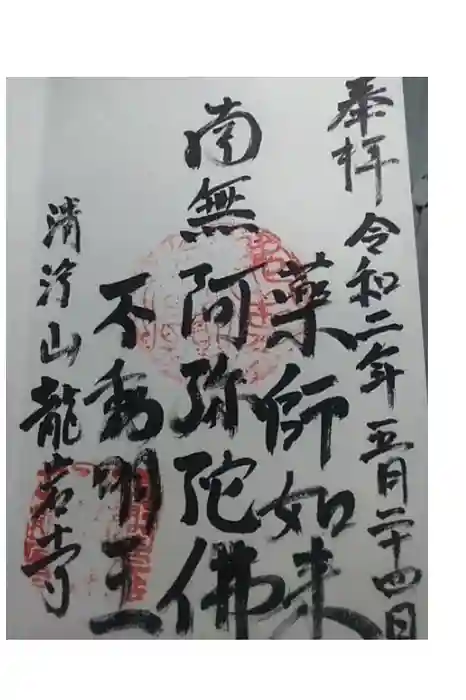 奉拝 令和二年五月二十四日
薬師如来
南無阿弥陀佛
不動明王
清浄山龍岩寺